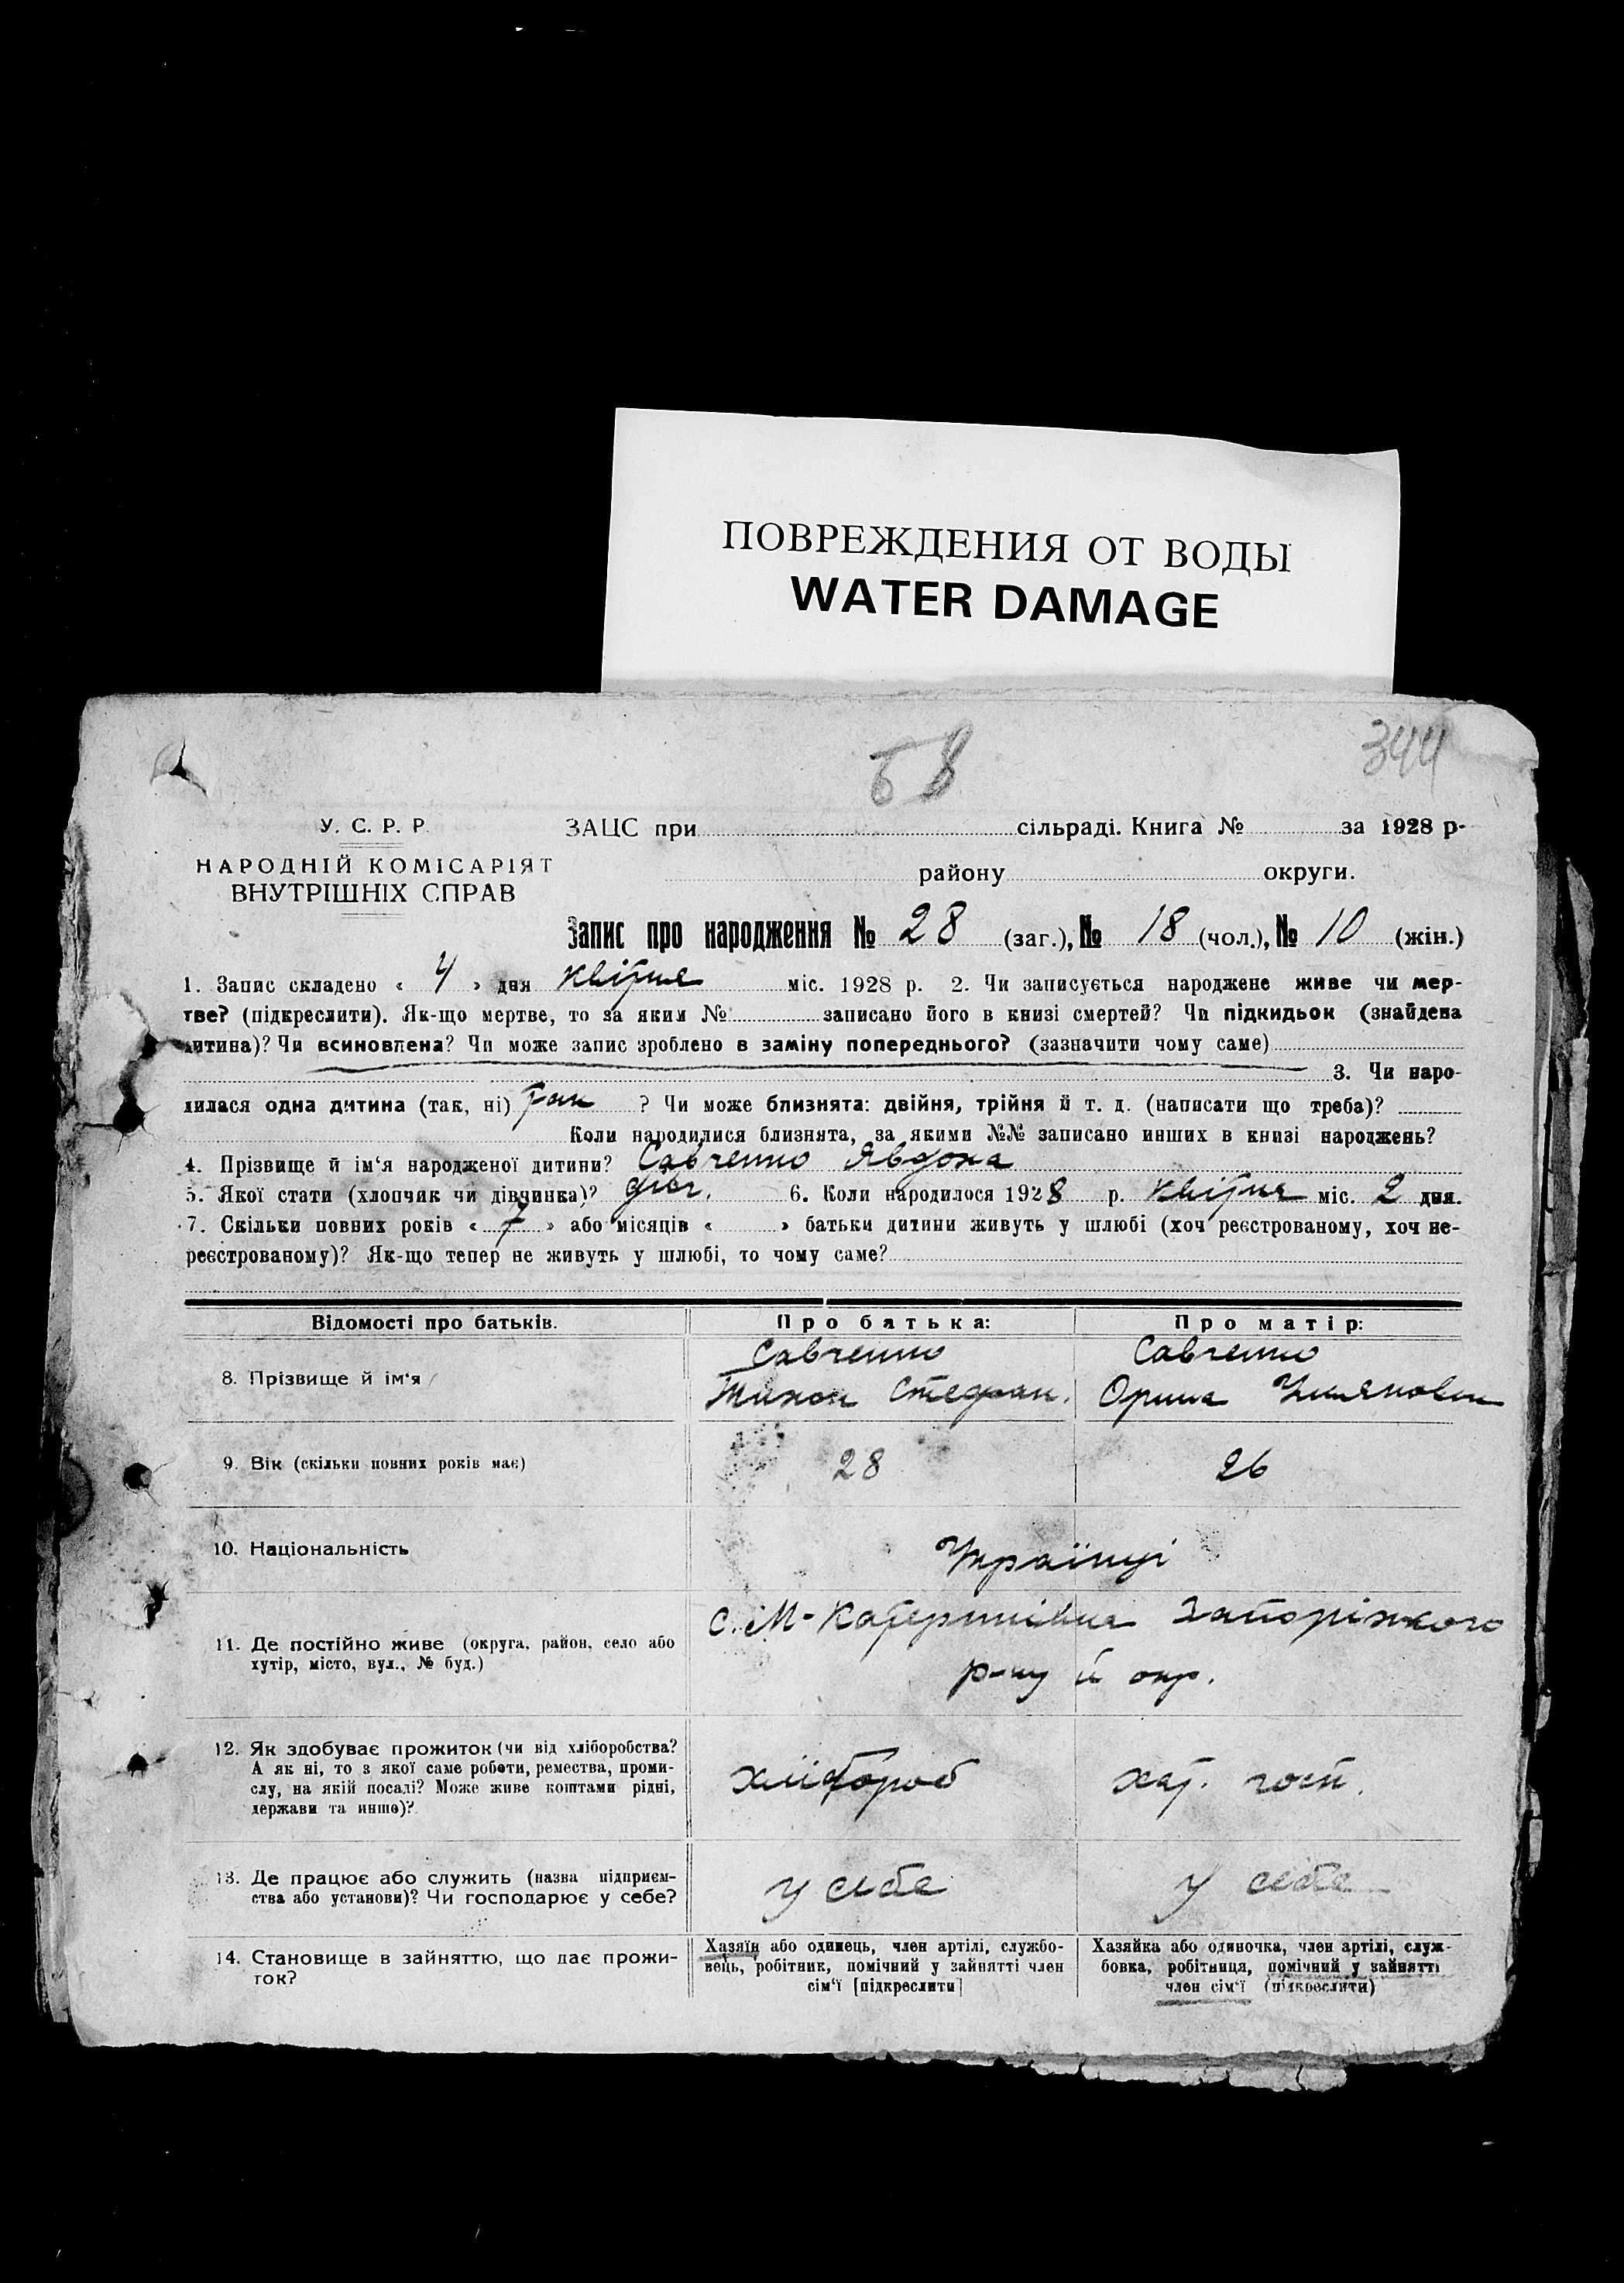 ПОВРЕЖДЕНИЯ ОТ ВОДЫ
WATER DAMAGE
344
У. С. Р. Р.
НАРОДНІЙ КОМІСАРІЯТ
ВНУТРІШНІХ СПРАВ
ЗАЦС при сільраді. Книга № за 1928 р.
району округи.
Запис про народження № 28 (заг.), № 18 (чол.), № 10 (жін.)
1. Запис складено « 4 » дня квітня міс. 1928 р. 2. Чи записується народжене живе чи мер-
тве? (підкреслити). Як-що мертве, то за яким № записано його в книзі смертей? Чи підкидьок (знайдена
дитина)? Чи всиновлена? Чи може запис зроблено в заміну попереднього? (зазначити чому саме)
3. Чи наро-
дилася одна дитина (так, ні) так ? Чи може близнята: двійня, трійня й т. д. (написати що треба)?
Коли народилися близнята, за якими №№ записано инших в книзі народжень?
4. Прізвище й ім‘я народженої дитини? Савченко Явдоха
5. Якої стати (хлопчик чи дівчинка)? дівч. 6. Коли народилося 1928 р. квітня міс. 2 дня.
7. Скільки повних років « 7 » або місяців « » батьки дитини живуть у шлюбі (хоч реєстрованому, хоч не-
реєстрованому)? Як-що тепер не живуть у шлюбі, то чому саме?
Відомості про батьків. Про батька: Про матір:
8. Прізвище й ім‘я Савченко Тихон Стефан. Савченко Орина
9. Вік (скільки повних років має) 28 26
10. Національність Українці
11. Де постійно живе (округа, район, село або
хутір, місто, вул., № буд.)
с. М-Катеринівка Запоріжкого
р-ну й окр.
12. Як здобуває прожиток (чи від хліборобства?
А як ні, то з якої саме роботи, ремества, проми-
слу, на якій посаді? Може живе коштами рідні,
держави та инше)?
хлібороб хат. госп.
13. Де працює або служить (назва підприєм-
ства або установи)? Чи господарює у себе?
у себе у себе
14. Становище в зайняттю, що дає прожи-
ток?
Хазяїн або одинець, член артілі, службо-
вець, робітник, помічний у зайнятті член
сім‘ї [підкреслити]
Хазяйка або одиночка, член артілі, служ-
бовка, робітниця, помічний у зайнятті
член сім‘ї (підкреслити)